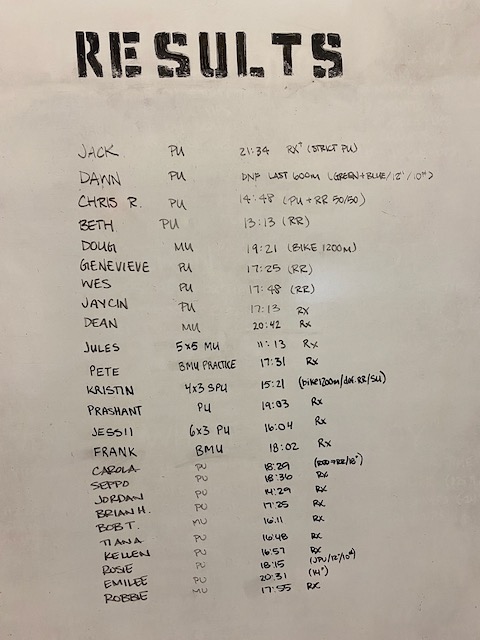 RESULTS
JACK PU 21:34 RX+ (STRICT PU)
DAWN PU DNF LAST 600M (GREEN+BLUE/12"/10#)
CHRIS R. PU 14:48 (PU + RR 50/50)
BETH PU 13:13 (RR)
DOUG MU 19:21 (BIKE 1200M)
GENEVIEVE PU 17:25 (RR)
WES PU 17:48 (RR)
JAYCIN PU 17:13 RX
DEAN MU 20:42 RX
JULES 5x5 MU 11:13 RX
PETE BMU PRACTICE 17:31 RX
KRISTIN 4x3 SPU 15:21 (bike1200m/dor.RR/SU)
PRASHANT PU 19:03 RX
JESSII 6x3 PU 16:04 RX
FRANK BMU 18:02 RX
CAROLA PU 18:29 (RED+RR/18")
SEPPO PU 18:36 RX
JORDAN PU 14:29 RX
BRIAN H. PU 17:25 RX
BOB T. MU 16:11 RX
TIANA PU 16:48 RX
KELLEN PU 16:57 RX
ROSIE PU 18:15 (JPU/12"/10#)
EMILEE PU 20:31 (14#)
ROBBIE MU 17:55 RX